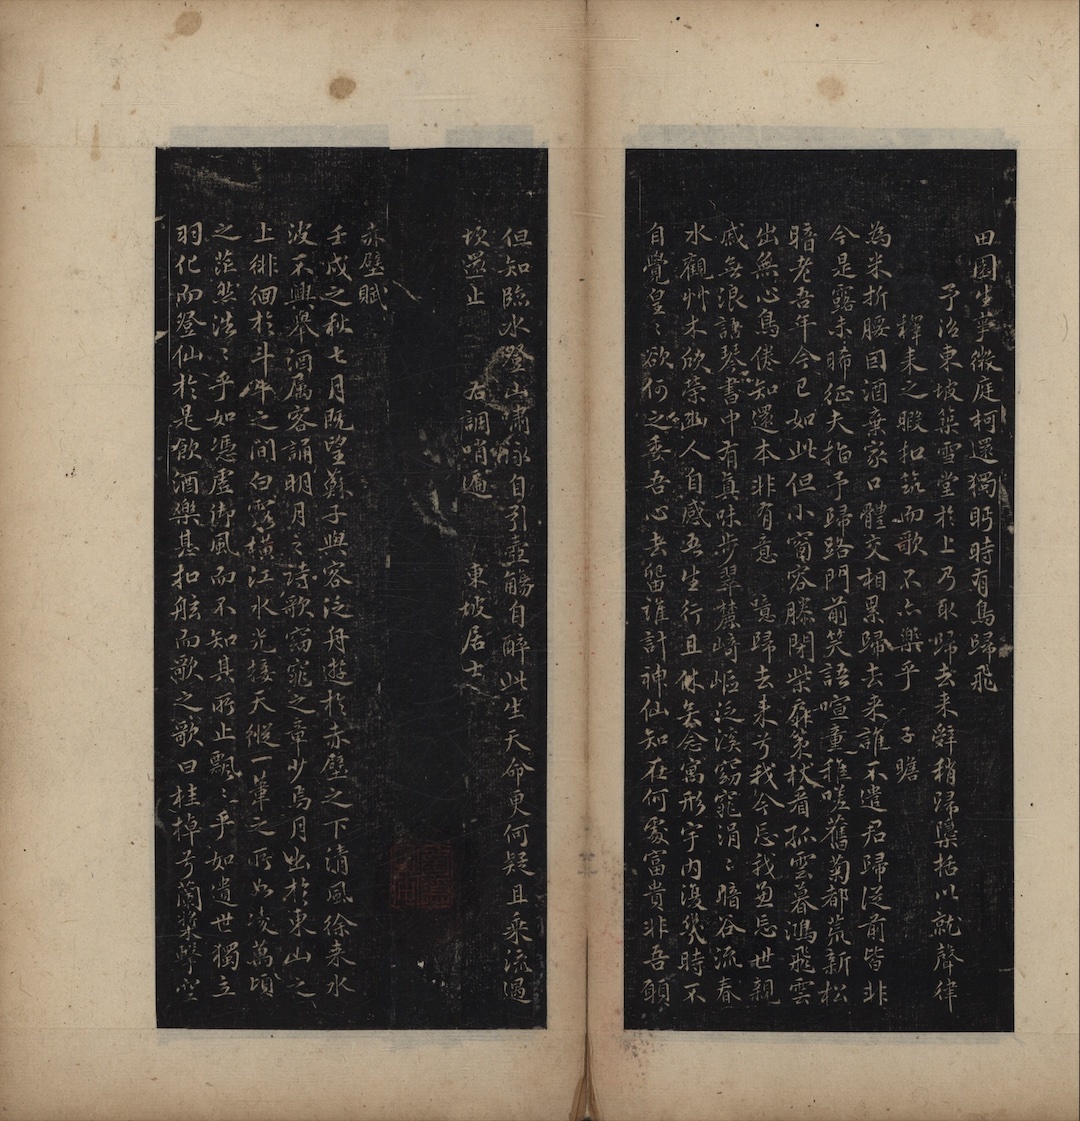 田園生事微庭柯還獨眄時有鳥歸飛
予治東坡築雪堂於上乃取歸去来辤稍歸檃栝以就聲律
釋耒之暇扣筑而歌不亦樂乎 子瞻
為米折腰因酒棄家口體交相累歸去来誰不遣君歸従前皆非
今是露未晞征夫指予歸路門前笑語喧童稚嗟舊菊都荒新松
暗老吾年今已如此但小窗容膝閉柴扉策杖看孤雲暮鴻飛雲
出無心鳥倦知還本非有意 噫歸去来兮我今忘我兼忘世親
戚無浪語琴書中有真味步翠麓崎嶇泛溪窈窕涓〻暗谷流春
水觀艸木欣榮幽人自感吾生行且休矣念寓形宇內復幾時不
自覺皇〻欲何之委吾心去留誰計神仙知在何處富貴非吾願
但知臨水登山嘯詠自引壺觴自醉此生天命更何疑且乘流遇
坎還止 右調哨遍 東坡居士
赤壁賦
壬戌之秋七月既望蘇子與客泛舟遊於赤壁之下清風徐来水
波不興舉酒属客誦明月之詩歌窈窕之章少焉月出於東山之
上徘徊於斗牛之間白露橫江水光接天縱一葦之所如淩萬頃
之茫然浩〻乎如憑虛御風而不知其所止飄〻乎如遺世獨立
羽化而登仙於是飲酒樂甚扣舷而歌之歌曰桂棹兮蘭槳擊空